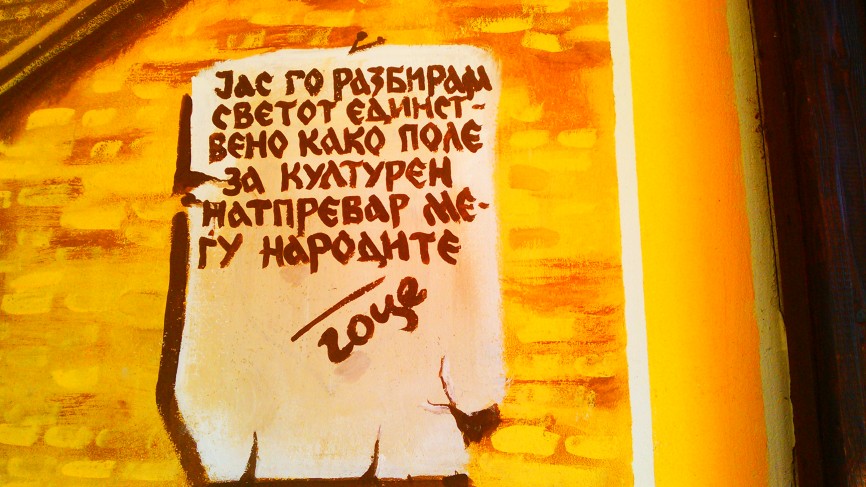 ЈАС ГО РАЗБИРАМ
СВЕТОТ ЕДИНСТ-
ВЕНО КАКО ПОЛЕ
ЗА КУЛТУРЕН
НАТПРЕВАР МЕ-
ЃУ НАРОДИТЕ
Гоце